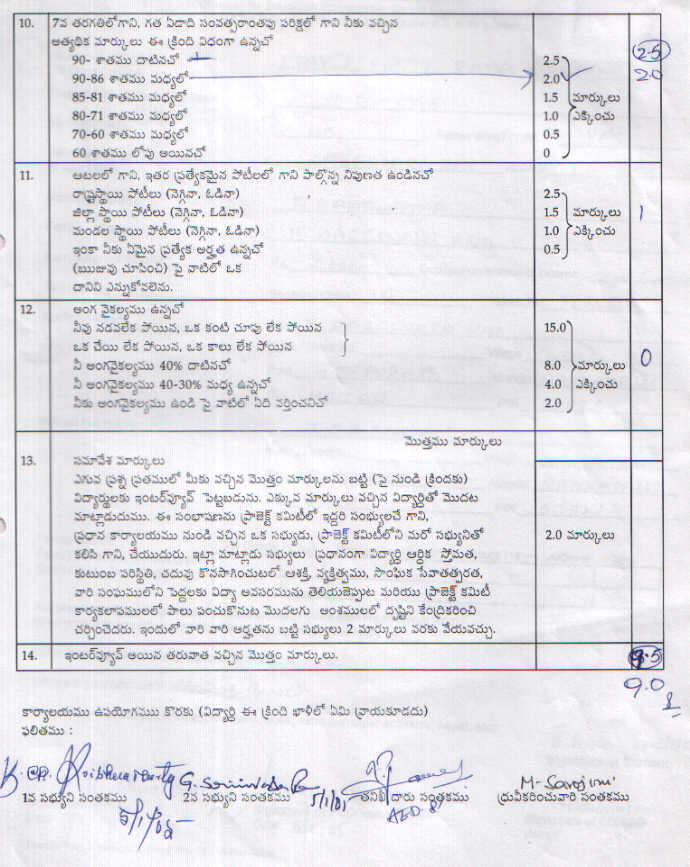 10. 7వ తరగతిలోగాని, గత ఏడాది సంవత్సరాంతపు పరీక్షలో గాని నీకు వచ్చిన
అత్యధిక మార్కులు ఈ క్రింది విధంగా ఉన్నచో
90- శాతము దాటినచో 2.5 2.5
90-86 శాతము మధ్యలో 2.0 2.0
85-81 శాతము మధ్యలో 1.5 మార్కులు
80-71 శాతము మధ్యలో 1.0 ఎక్కించు
70-60 శాతము మధ్యలో 0.5
60 శాతము లోపు అయినచో 0
11. ఆటలలో గాని, ఇతర ప్రత్యేకమైన పోటీలలో గాని పాల్గొన్న నిపుణత ఉండినచో
రాష్ట్రస్థాయి పోటీలు (నెగ్గినా, ఓడినా) 2.5
జిల్లా స్థాయి పోటీలు (నెగ్గినా, ఓడినా) 1.5 మార్కులు 1
మండల స్థాయి పోటీలు (నెగ్గినా, ఓడినా) 1.0 ఎక్కించు
ఇంకా నీకు ఏమైన ప్రత్యేక అర్హత ఉన్నచో 0.5
(ఋజువు చూపించి) పై వాటిలో ఒక
దానిని ఎన్నుకోవలెను.
12. అంగ వైకల్యము ఉన్నచో
నీవు నడవలేక పోయిన, ఒక కంటి చూపు లేక పోయిన 15.0
ఒక చేయి లేక పోయిన, ఒక కాలు లేక పోయిన
నీ అంగవైకల్యము 40% దాటినచో 8.0 మార్కులు 0
నీ అంగవైకల్యము 40-30% మధ్య ఉన్నచో 4.0 ఎక్కించు
నీకు అంగవైకల్యము ఉండి పై వాటిలో ఏది వర్తించనిచో 2.0
మొత్తము మార్కులు
13. సమావేశ మార్కులు
ఎగువ ప్రశ్న ప్రతములో మీకు వచ్చిన మొత్తం మార్కులను బట్టి (పై నుండి క్రిందకు)
విద్యార్థులకు ఇంటర్‌వ్యూన్ పెట్టబడును. ఎక్కువ మార్కులు వచ్చిన విద్యార్థితో మొదట
మాట్లాడుదుము. ఈ సంభాషణను ప్రాజెక్ట్ కమిటీలో ఇద్దరి సంభ్యులచే గాని,
ప్రధాన కార్యాలయము నుండి వచ్చిన ఒక సభ్యుడు, ప్రాజెక్ట్ కమిటీలోని మరో సభ్యునితో 2.0 మార్కులు
కలిసి గాని, చేయుదురు. ఇట్లా మాట్లాడు సభ్యులు ప్రధానంగా విద్యార్థి ఆర్థిక స్తోమత,
కుటుంబ పరిస్థితి, చదువు కొనసాగించుటలో ఆశక్తి, వ్యక్తిత్వము, సాంఘిక సేవాతత్పరత,
వారి సంఘములోని పెద్దలకు విద్యా అవసరమును తెలియజెప్పుట మరియు ప్రాజెక్ట్ కమిటీ
కార్యకలాపములలో పాలు పంచుకొనుట మొదలగు అంశములలో దృష్టిని కేంద్రికరించి
చర్చించెదరు. ఇందులో వారి వారి అర్హతను బట్టి సభ్యులు 2 మార్కులు వరకు వేయవచ్చు.
14. ఇంటర్‌వ్యూన్ అయిన తరువాత వచ్చిన మొత్తం మార్కులు. 9.5
9.0
కార్యాలయము ఉపయోగముు కొరకు (విద్యార్థి ఈ క్రింది ఖాళీలో ఏమి వ్రాయకూడదు)
ఫలితము :
M. Sarojini
1వ సభ్యుని సంతకము 2వ సభ్యుని సంతకము 5/1/01 తనిఖీ దారు సంతకము ధ్రువీకరించువారి సంతకము